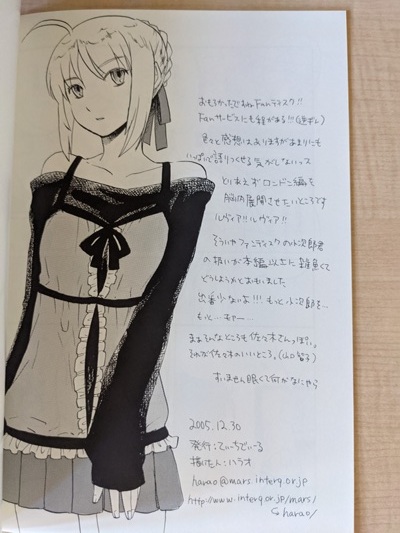 おもろかったですねFanディスク!!
Fanサービスにも程がある!!!(逆ギレ)
色々と感想はありますがあまりにも
いっぱいで語りつくせる気がしないッス
とりあえずロンドン編を
脳内展開させたいところです
ルヴィア!!ルヴィア!!
そういやファンディスクの小次郎君
の扱いが本編以上に雑魚くて
どうしようかとおもいました
出番少ないよ!!!もっと小次郎を…
もっと…キャー…
まぁそんなところも佐々木さんっぽい。
それが佐々木のいいところ。(山口智子)
すいません眠くて何がなにやら
2005.12.30
発行:てぃーちでぃーる
描いた人:ハラオ
harao@mars.interq.or.jp
http://www.interq.or.jp/mars/
harao/